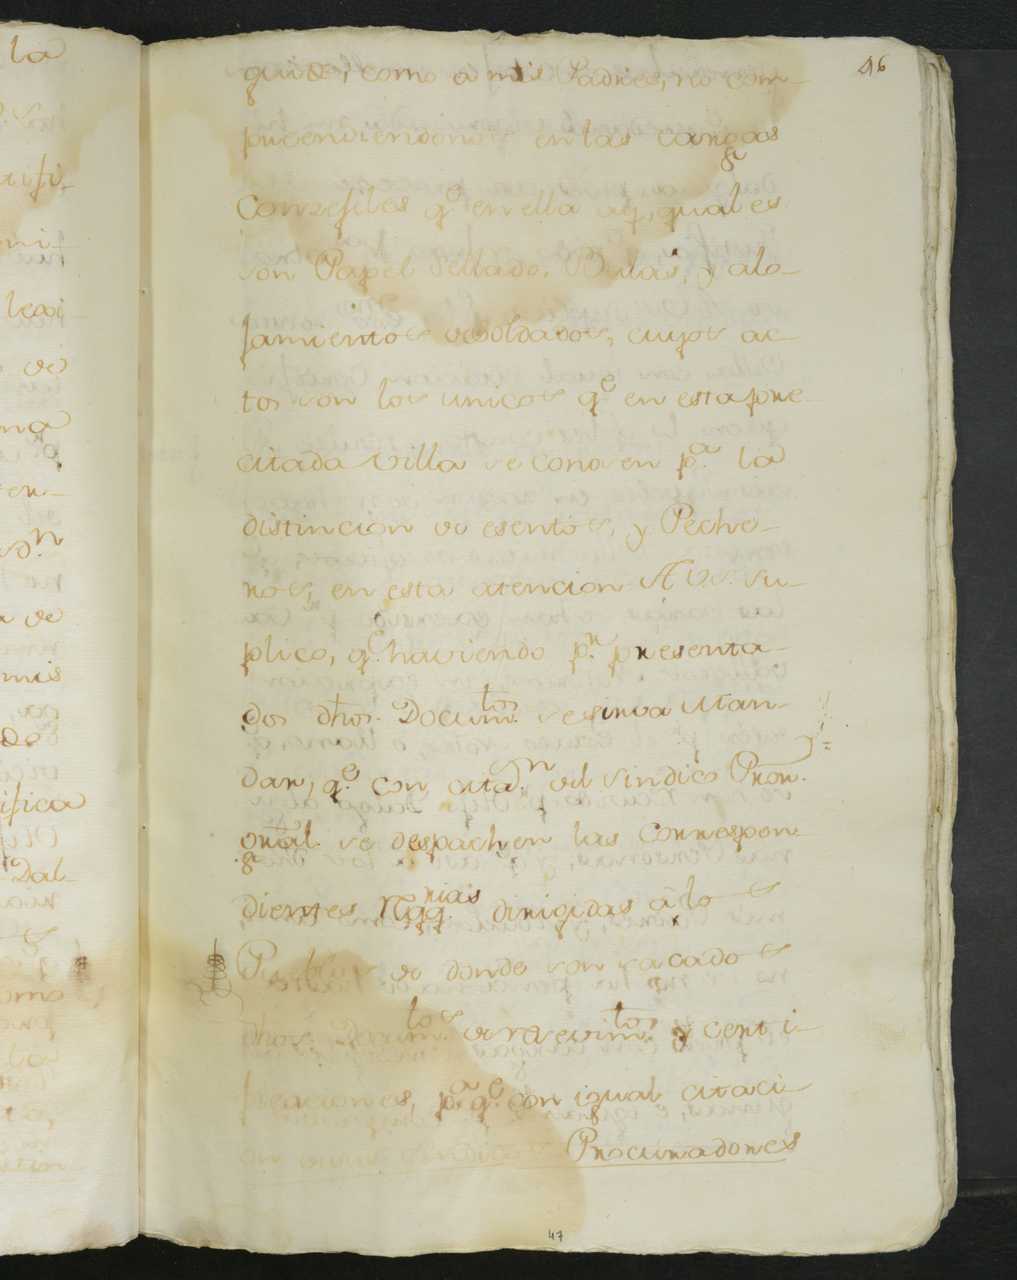 46
guide, como a mis Padres, no com-
prendiendonos en las cargas
Conzegiles q.e en ella ay, quales
son Papel Sellado, Bulas, y alo-
jamientos de soldados, cuyos ac-
tos son los unicos q.e en esta pre-
citada Villa se conosen p.a la
distincion de esentos, y Peche-
ros, en esta atencion A V. su-
plico, q.e haviendo p.r presenta-
dos dhos. Docum.tos se sirva Man-
dar, q.e con cita.n del Sindico Pror.
gral se despachen las Correspon-
dientes Rqq.rias dirigidas à los
Pueblos de donde son sacados
dhos. Docum.tos y certi-
ficaciones, p.a q.e con igual citaci-
on Procuradores
47